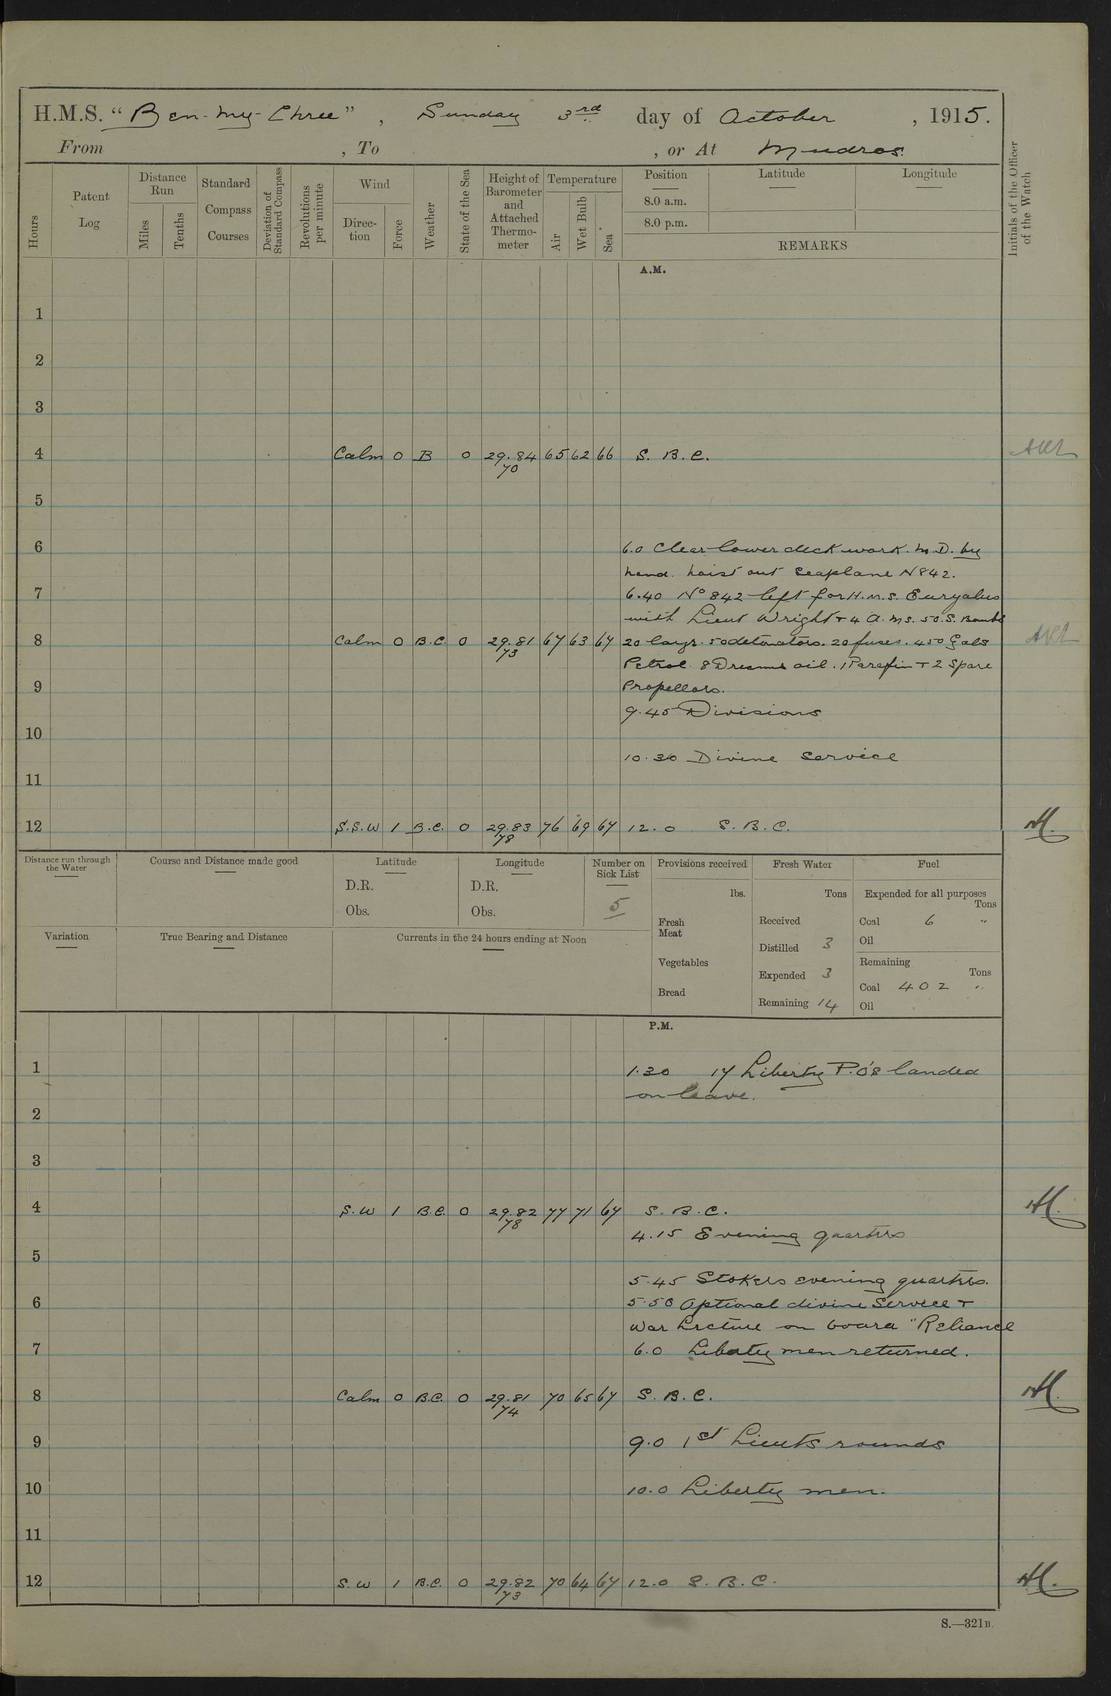 H.M.S. "Ben-my-Chree", Sunday 3rd day of October, 1915.
From , To , or At Mudros.
Hours
Patent Log
Distance Run
Miles
Tenths
Standard Compass Courses
Deviation of Standard Compass
Revolutions per minute
Wind
Direction
Force
Weather
State of the Sea
Height of Barometer and Attached Thermometer
Temperature
Air
Wet Bulb
Sea
Position
Latitude
Longitude
8.0 a.m.
8.0 p.m.
REMARKS
Initials of the Officer of the Watch
A.M.
1
2
3
4 Calm 0 B 0 29.84 65 62 66 S. B. C.
70
5
6 6.0 Clear lower deck work. M.D. by
hand. hoist out Seaplane N842.
7 6.40 No 842 left for H.M.S. Euryalus
with Lieut Wright + 4 A.Ms. 50.S. Bombs
8 Calm 0 B.C 0 29.81 67 63 67 20 50 detonators. 20 fuses. 450 Gals
73
Petrol 8 Drums oil. 1 Parafin + 2 Spare
9 Propellors.
9.45 Divisions
10
10.30 Divine Service
11
12 S.S.W 1 B.C. 0 29.83 76 69 67 12.0 S. B. C.
78
Distance run through the Water
Course and Distance made good
Latitude
D.R.
Obs.
Longitude
D.R.
Obs.
Number on Sick List
5
Provisions received
lbs.
Fresh Meat
Vegetables
Bread
Fresh Water
Tons
Received
Distilled 3
Expended 3
Remaining 14
Fuel
Expended for all purposes
Tons
Coal 6 "
Oil
Remaining
Tons
Coal 402 "
Oil
Variation
True Bearing and Distance
Currents in the 24 hours ending at Noon
P.M.
1 1.30 17 Liberty P.O's landed
on leave.
2
3
4 S.W 1 B.C. 0 29.82 77 71 67 S. B. C.
78
4.15 Evening quarters
5
5.45 Stokers evening quarters.
6 5.50 Optional divine Service +
War Lecture on board "Reliance
7 6.0 Liberty men returned.
8 Calm 0 B.C. 0 29.81 70 65 67 S. B. C.
74
9 9.0 1st Lieuts rounds
10 10.0 Liberty men.
11
12 S.W 1 B.C. 0 29.82 70 64 67 12.0 S. B. C.
73
S.—321B.